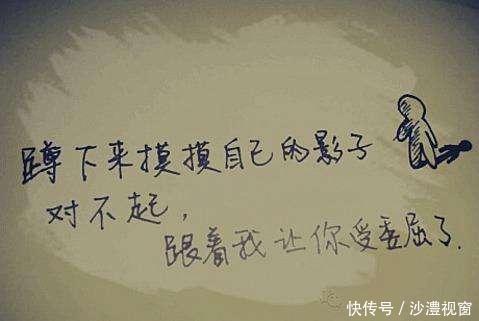 蹲下来摸摸自己的影子
对不起，
跟着我让你受委屈了.
快传号／沙澧视窗